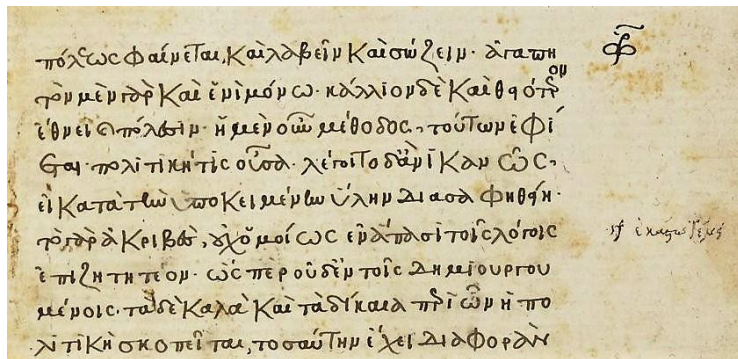 πόλεως φαίνεται, καὶ λαβεῖν καὶ σώζειν· ἀγαπη
τὸν μὲν γὰρ καὶ ἑνὶ μόνω· κάλλιον δὲ καὶ θειότερον
ἔθνει καὶ πόλεσιν· ἡ μὲν οὖν μέθοδος, τούτων ἐφί
εται· πολιτική τις οὖσα· λέγοιτο δ' ἂν ἱκανῶς,
εἰ κατὰ τὴν ὑποκειμένην ὕλην διασαφηθείη·
τὸ γὰρ ἀκριβὲς, οὐχ ὁμοίως ἐν ἅπασι τοῖς λόγοις
ἐπιζητητέον· ὥσπερ οὐδ' ἐν τοῖς δημιουργου
μένοις· τὰ δὲ καλὰ καὶ τὰ δίκαια περὶ ὧν ἡ πο
λιτικὴ σκοπεῖται, τοσαύτην ἔχει διαφορὰν